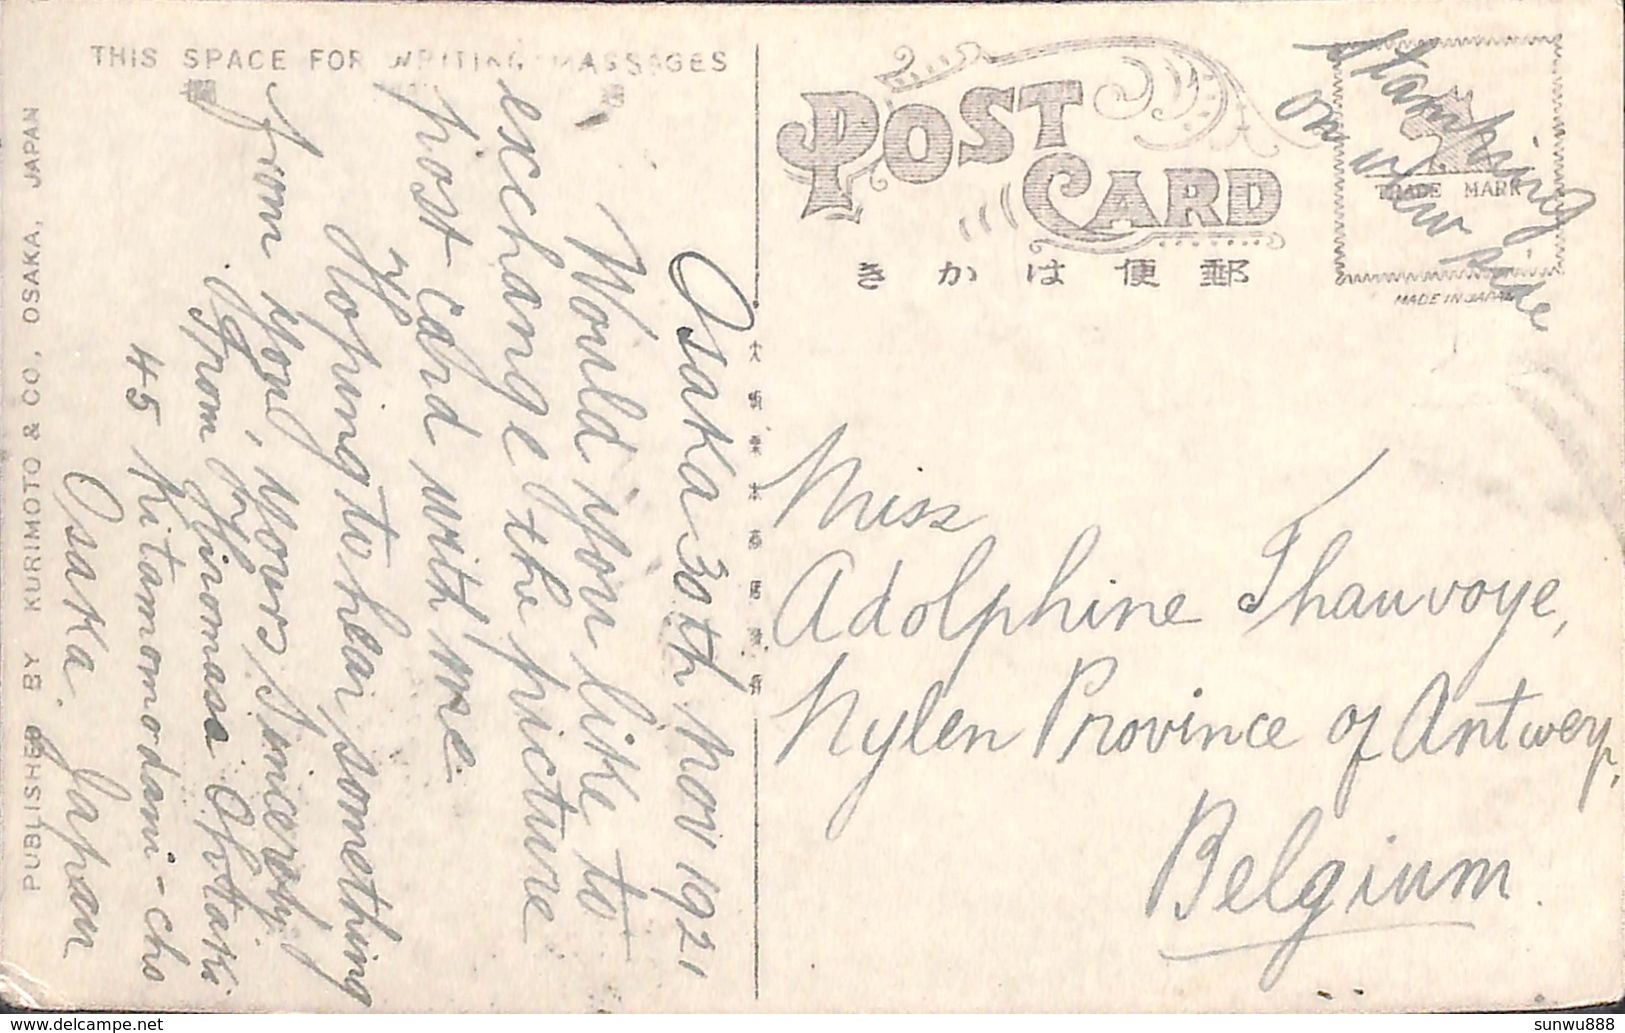 THIS SPACE FOR WRITING MASSAGES
Osaka 30th Nov 1921
Would you like to
exchange the picture
post card with me
?
Hoping to hear something
from you, yours Sincerely
From Hiromasa
45 Kitamomodani-cho
Osaka. Japan
PUBLISHED BY KURIMOTO & CO, OSAKA, JAPAN
POST CARD
きかは便郵
Stamping
on view side
TRADE MARK
MADE IN JAPAN
Miss
Adolphine Thauvoye,
Nylen Province of Antwerp,
Belgium.
sunwu888